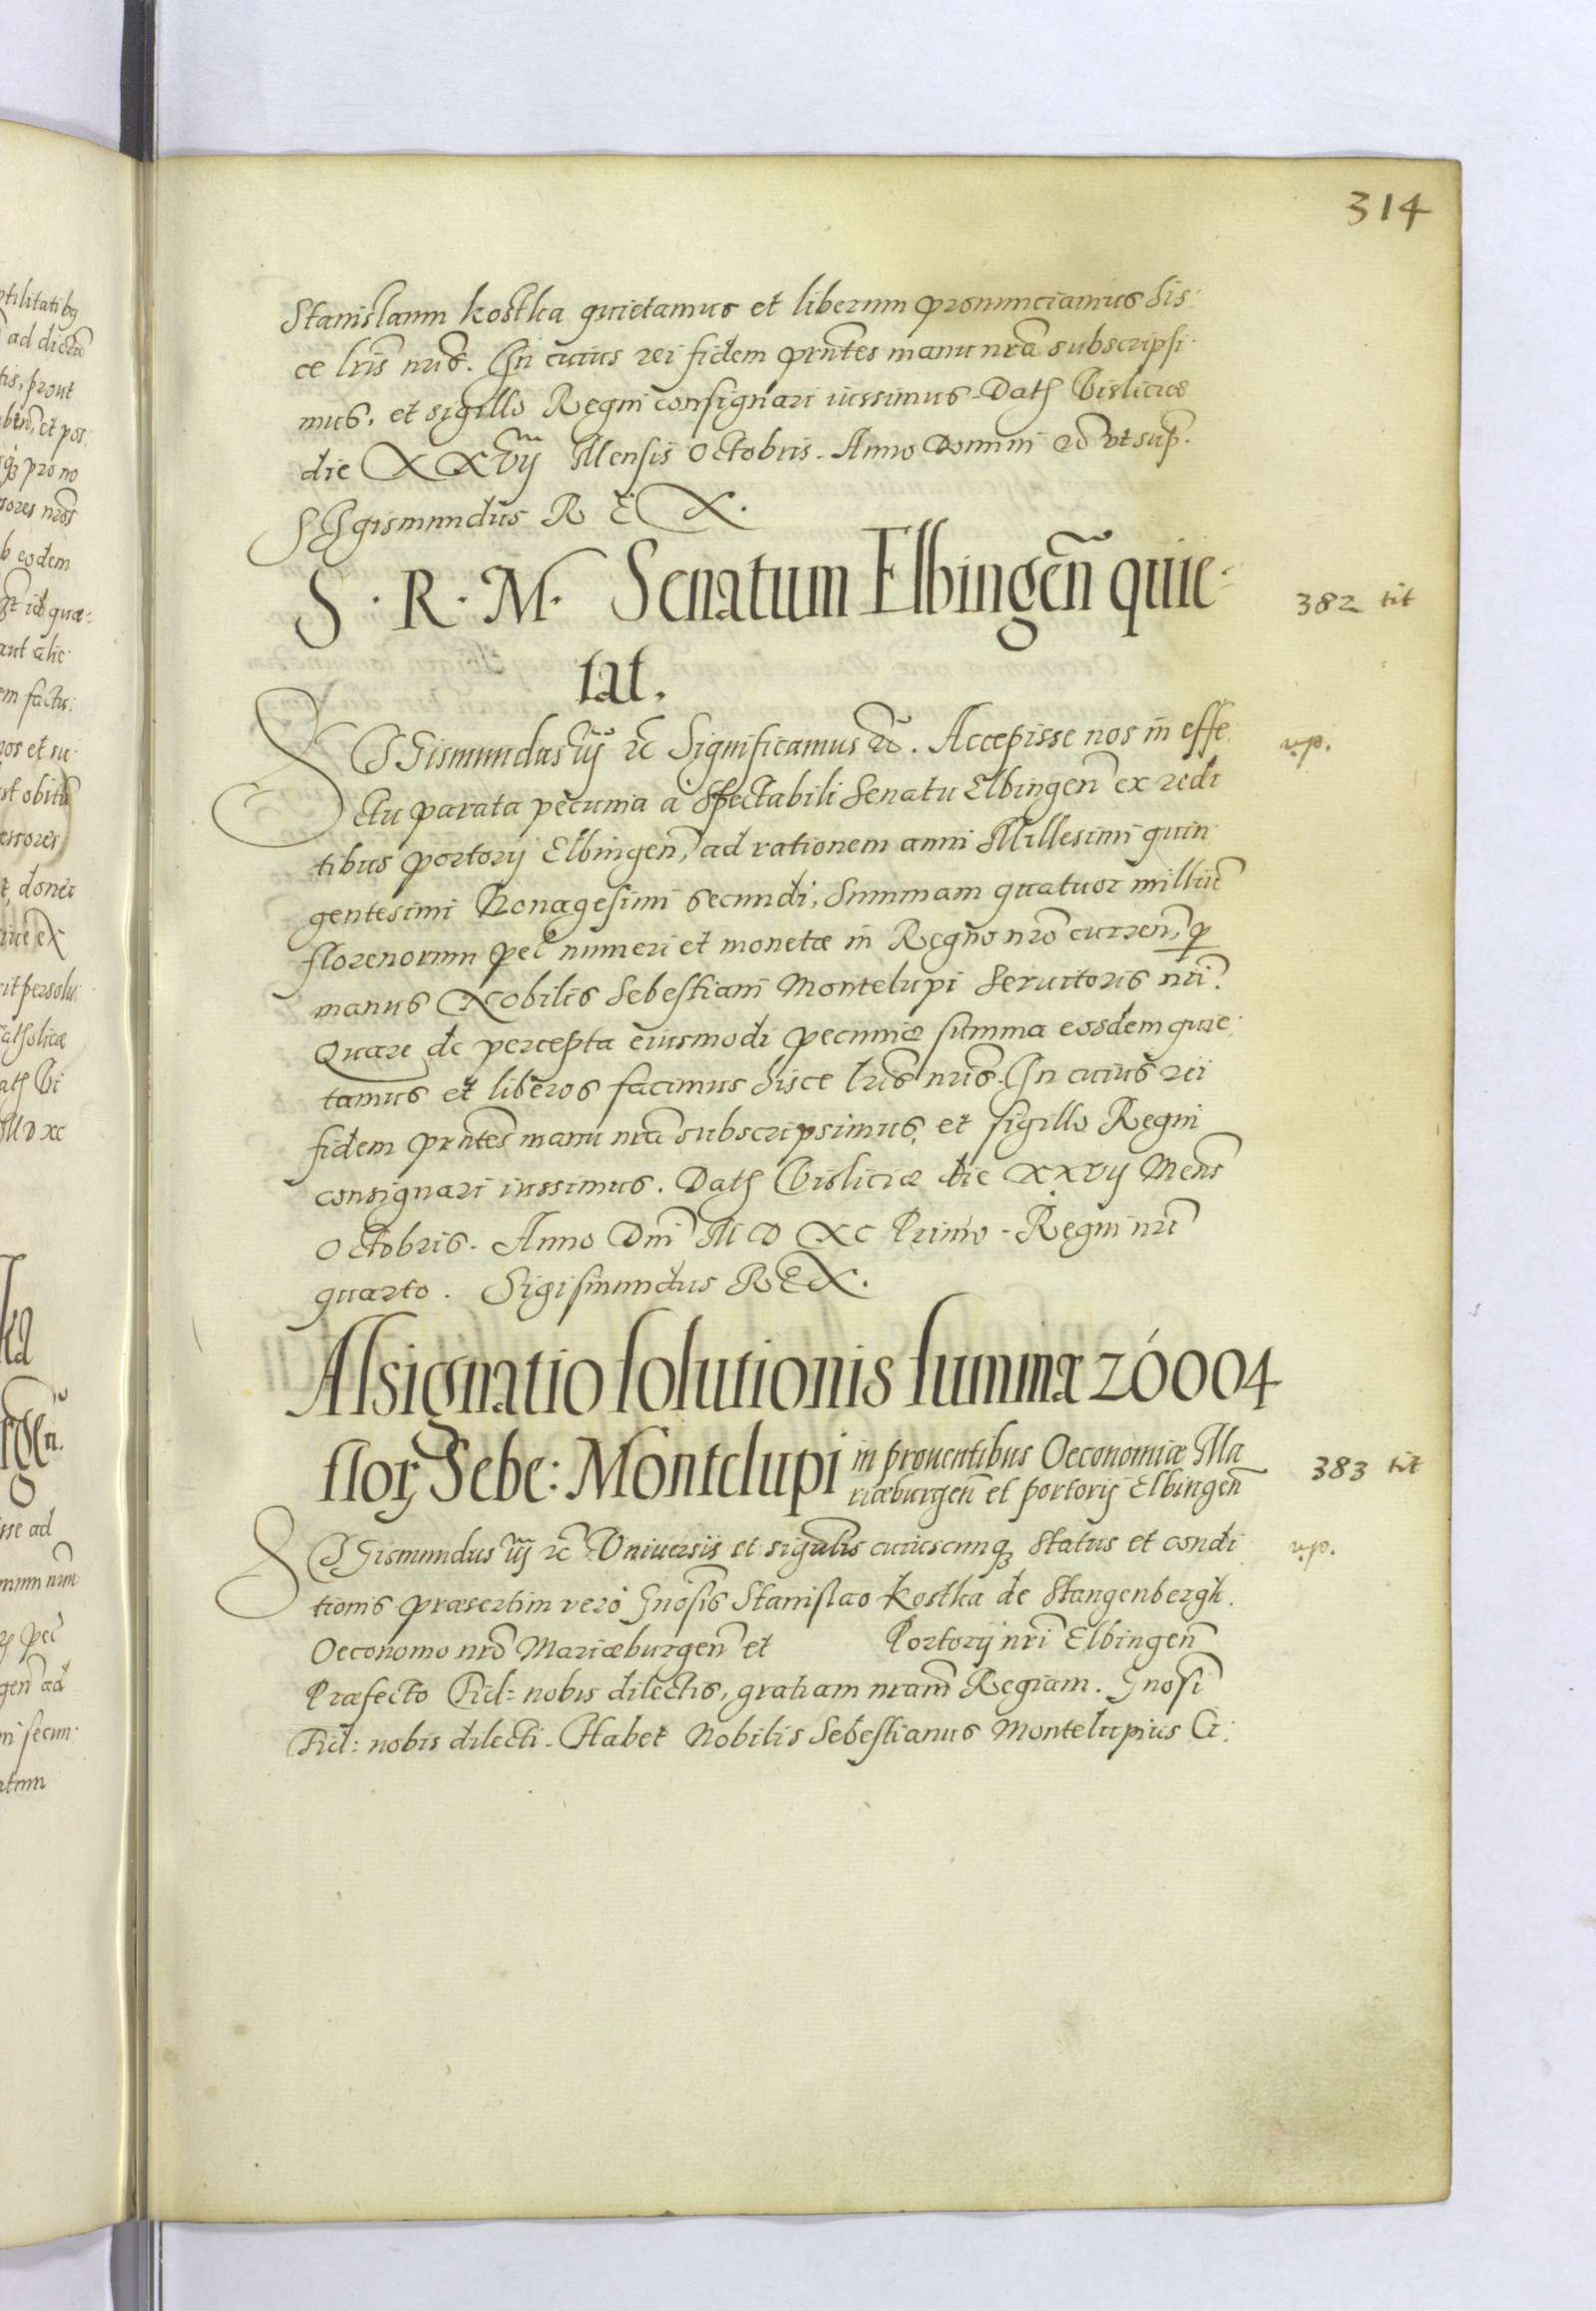 314
Stanislaum kostka quietamus et liberum pronunciamus his
ce lris nris. In cuius rei fidem prntes manu nra subscripsi
mus, et sigillo Regni consignari iussimus. Dat Visliciæ
die XXVij Mensis Octobris. Anno Domini ut sup.
SIgismundus REX.
S. R. M. Senatum Elbingen quie
tat.
382 tit
SIGismundus iij etc Significamus etc. Accepisse nos in effe
v.p.
ctu parata pecunia a Spectabili Senatu Elbingen ex redi
tibus portorij Elbingen, ad rationem anni Millesimi quin
gentesimi Nonagesimi secundi, summam quatuor milliu
florenorum pec numeri et monetæ in Regno nro curren, p
manus Nobilis Sebestiani Montelupi Seruitoris nri.
Quare de percepta eiusmodi pecuniæ summa eosdem quie
tamus et liberos facimus hisce lris nris. In cuius rei
fidem prntes manu nra subscripsimus, et sigillo Regni
consignari iussimus. Dat Visliciæ die XXVij Mens
Octobris. Anno Dni MD XC Primo. Regni nri
quarto. Sigismundus REX.
Assignatio solutionis summæ 26004
flor, Sebe: Montelupi in prouentibus Oeconomiæ Ma
riæburgen et portorij Elbingen
383 tit
SIGismundus iij etc Vniuersis et singulis cuiuscunq status et condi
v.p.
tionis præsertim vero Gnosis Stanislao Kostka de Stangenbergk
Oeconomo nro Mariæburgen et Portorij nri Elbingen
Præfecto Fid: nobis dilectis, gratiam nram Regiam. Gnosi
Fid: nobis dilecti. Habet Nobilis Sebestianus Montelupius Ci